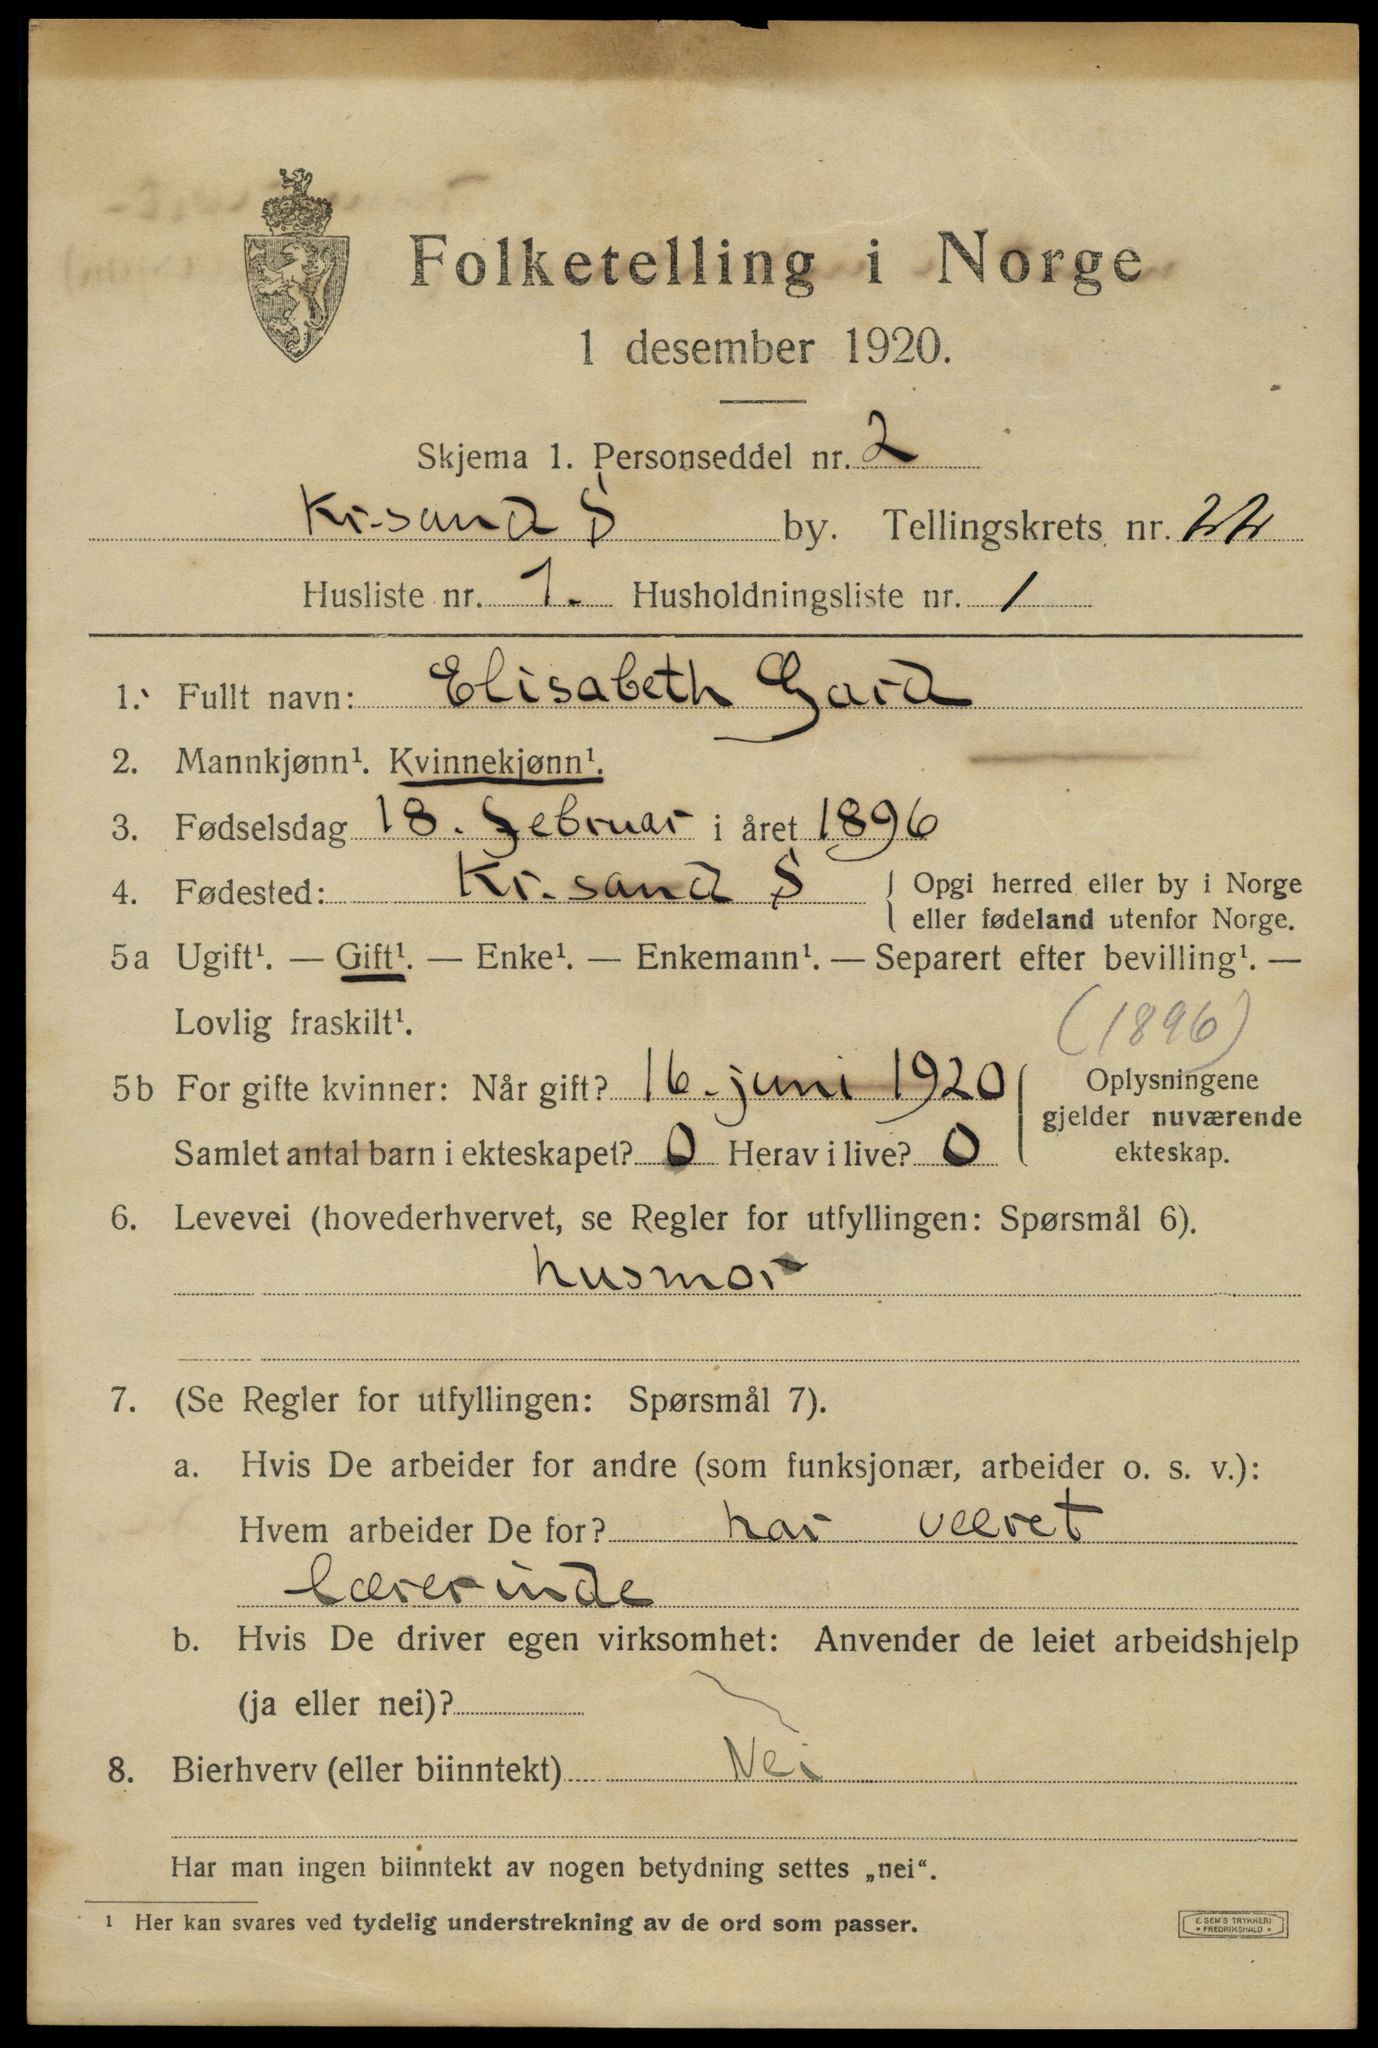 Folketelling i Norge
1 desember 1920.
Skjema 1. Personseddel nr. 2
Kr.sand S by. Tellingskrets nr. 22
Husliste nr. 1. Husholdningsliste nr. 1
1. Fullt navn: Elisabeth Gard
2. Mannkjønn¹. Kvinnekjønn¹.
3. Fødselsdag 18. Februar i året 1896
4. Fødested: Kr.sand S { Opgi herred eller by i Norge
eller fødeland utenfor Norge.
5a Ugift¹. — Gift¹. — Enke¹. — Enkemann¹. — Separert efter bevilling¹. —
Lovlig fraskilt¹.
(1896)
5b For gifte kvinner: Når gift? 16. juni 1920 Oplysningene
gjelder nuværende
Samlet antal barn i ekteskapet? 0 Herav i live? 0 ekteskap.
6. Levevei (hovederhvervet, se Regler for utfyllingen: Spørsmål 6).
husmor
7. (Se Regler for utfyllingen: Spørsmål 7).
a. Hvis De arbeider for andre (som funksjonær, arbeider o. s. v.):
Hvem arbeider De for? har været
lærerinde
b. Hvis De driver egen virksomhet: Anvender de leiet arbeidshjelp
(ja eller nei)?
8. Bierhverv (eller biinntekt) Nei
Har man ingen biinntekt av nogen betydning settes „nei“.
¹ Her kan svares ved tydelig understrekning av de ord som passer.
E. SEM'S TRYKKERI
• FREDRIKSHALD •